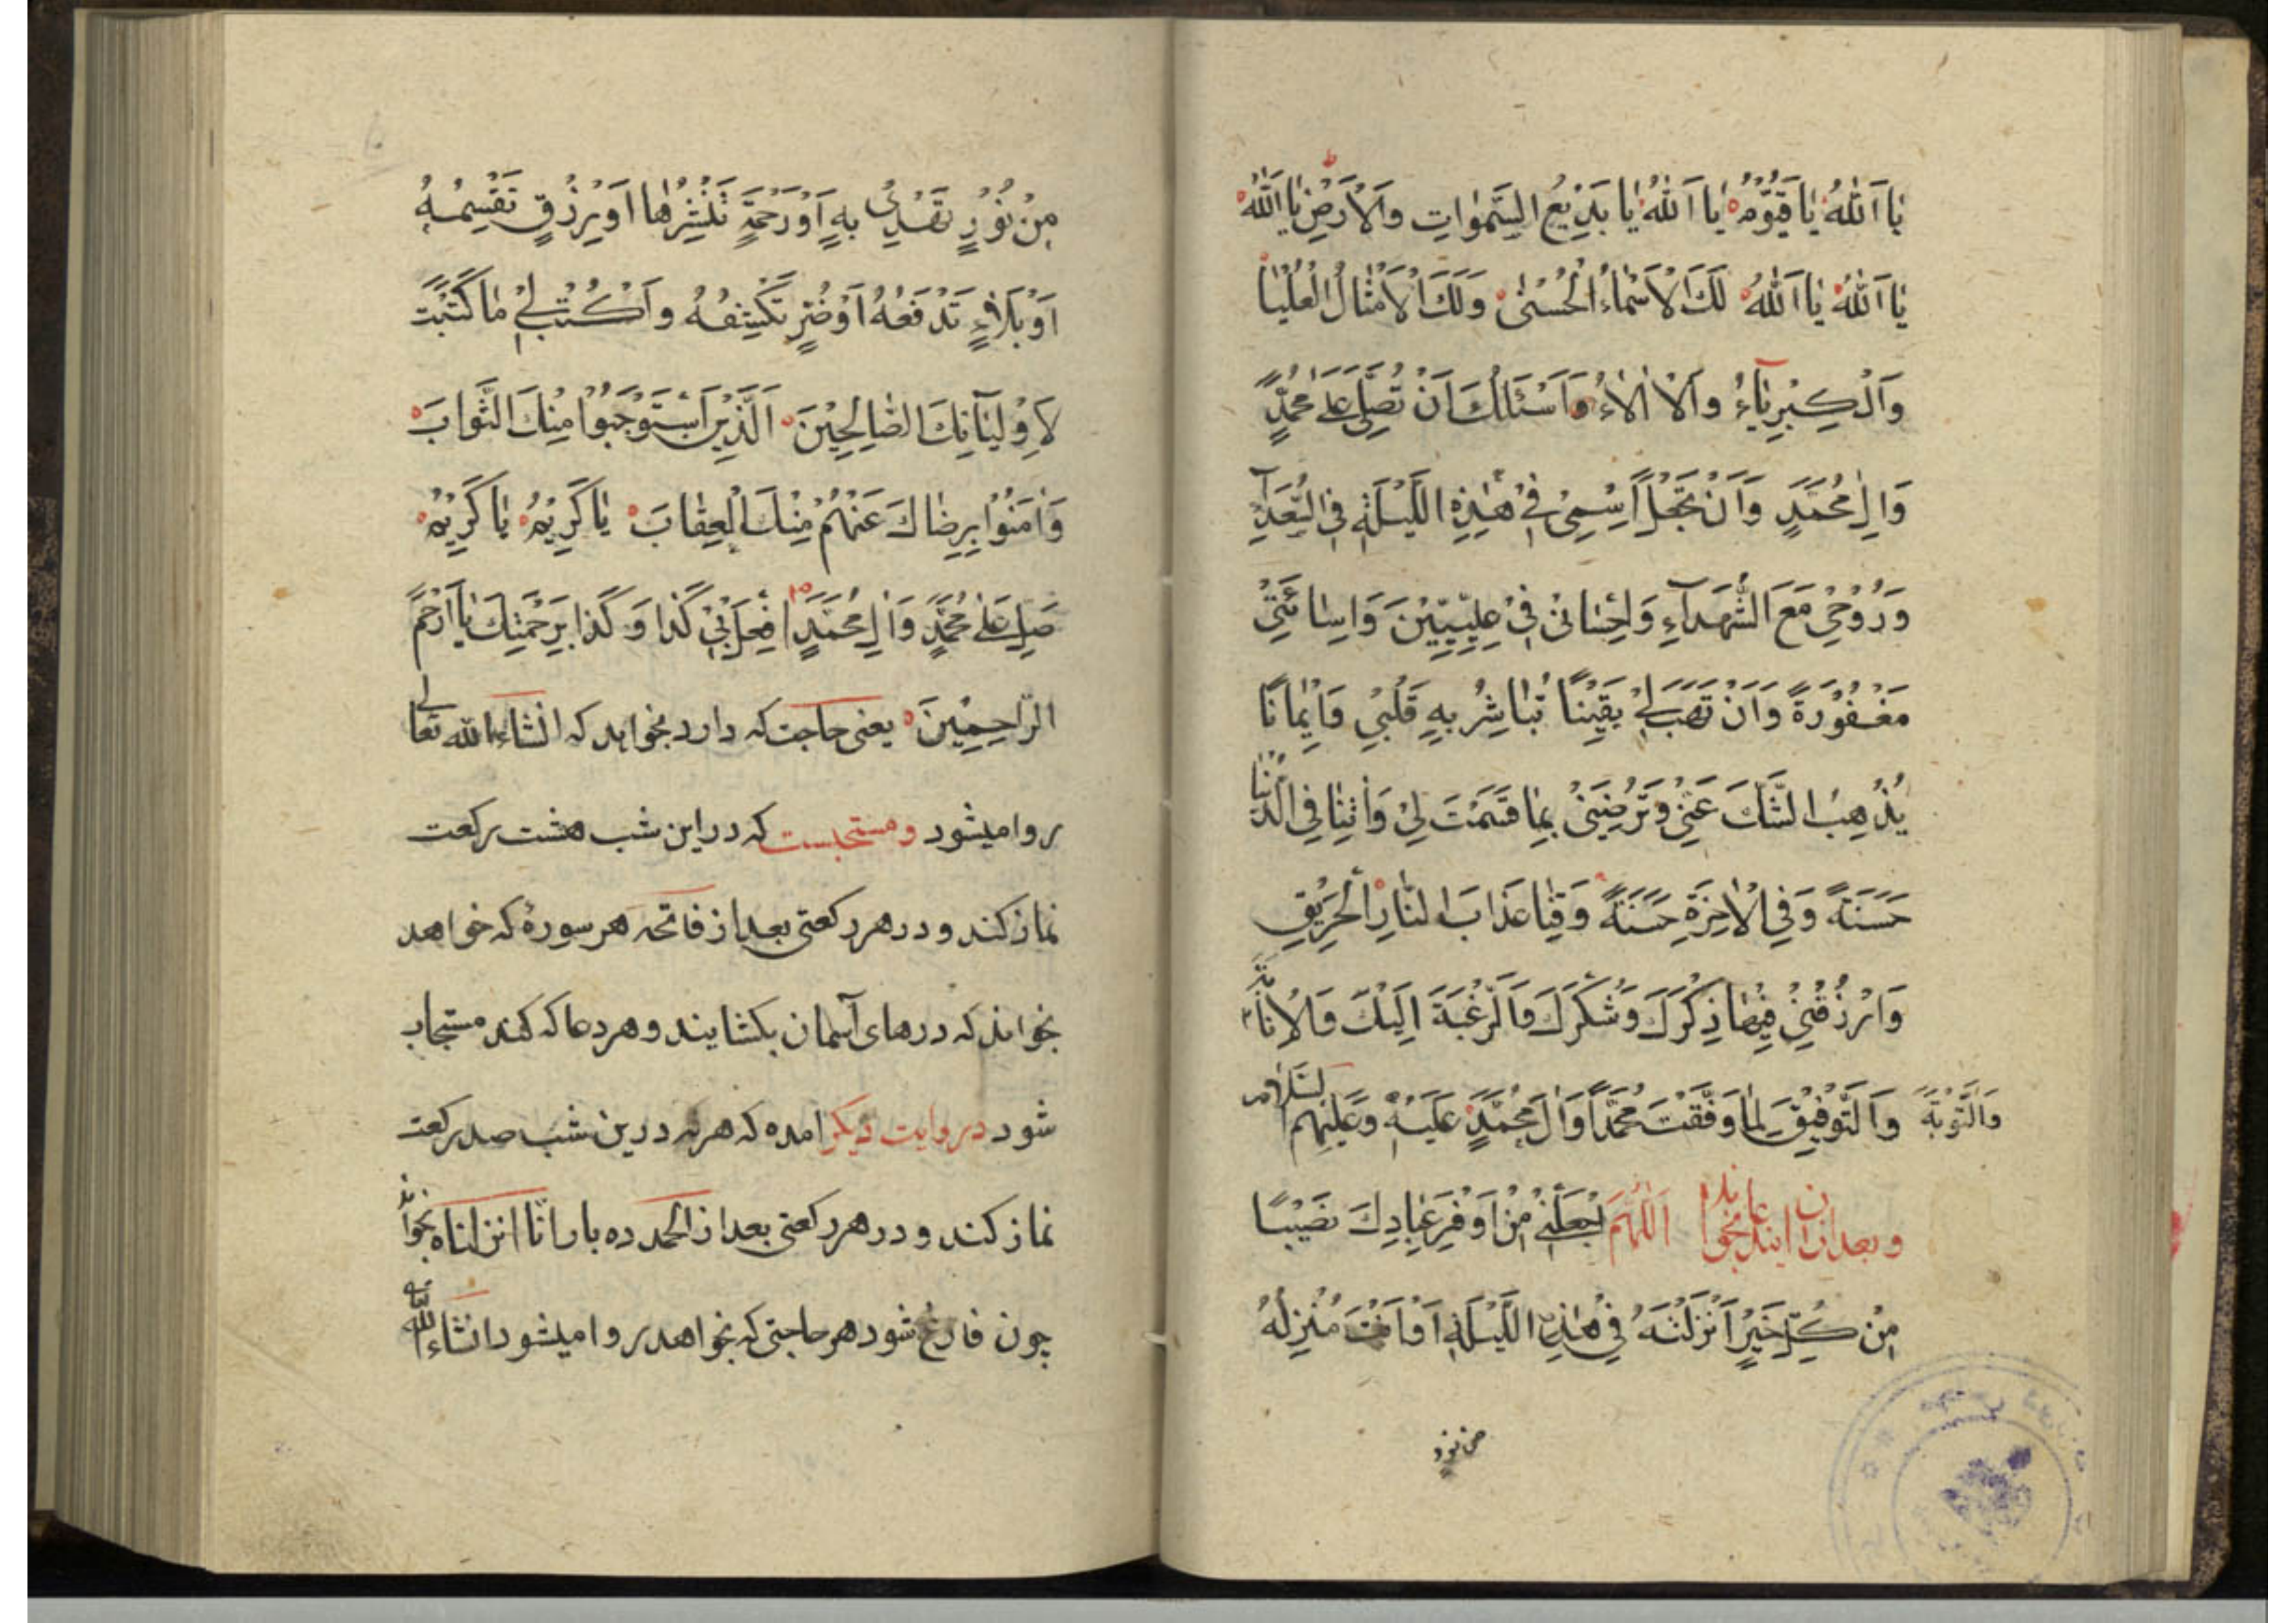 يَا اَللّٰهُ يَا قَيُّوْمُ يَا اَللّٰهُ يَا بَدِيْعَ السَّمٰوَاتِ وَالْاَرْضِ يَا اَللّٰهُ
يَا اَللّٰهُ يَا اَللّٰهُ لَكَ الْاَسْمَاءُ الْحُسْنٰى وَلَكَ الْاَمْثَالُ الْعُلْيَا
وَالْكِبْرِيَآءُ وَالْاٰلَاءُ وَاَسْئَلُكَ اَنْ تُصَلِّىَ عَلٰى مُحَمَّدٍ
وَاٰلِ مُحَمَّدٍ وَاَنْ تَجْعَلَ اِسْمِىْ فِىْ هٰذِهِ اللَّيْلَةِ فِى السُّعَدَآءِ
وَرُوْحِىْ مَعَ الشُّهَدَآءِ وَاِحْسَانِىْ فِىْ عِلِّيِّيْنَ وَاِسَائَتِىْ
مَغْفُوْرَةً وَاَنْ تَهَبَ لِىْ يَقِيْنًا تُبَاشِرُ بِهٖ قَلْبِىْ وَاِيْمَانًا
يُذْهِبُ الشَّكَ عَنِّىْ وَتَرْضِيَنِىْ بِمَا قَسَمْتَ لِىْ وَاٰتِنَا فِى الدُّنْيَا
حَسَنَةً وَفِى الْاٰخِرَةِ حَسَنَةً وَقِنَا عَذَابَ النَّارِ الْحَرِيْقِ
وَارْزُقْنِىْ فِيْهَا ذِكْرَكَ وَشُكْرَكَ وَالرَّغْبَةَ اِلَيْكَ وَالْاِنَابَةَ
وَالتَّوْبَةَ وَالتَّوْفِيْقَ لِمَا وَفَّقْتَ مُحَمَّدًا وَاٰلَ مُحَمَّدٍ عَلَيْهِ وَعَلَيْهِمُ السَّلَامُ
وبعد ازان ايندعا بخواند اَللّٰهُمَّ اجْعَلْنِىْ مِنْ اَوْفَرِ عِبَادِكَ نَصِيْبًا
مِنْ كُلِّ خَيْرٍ اَنْزَلْتَهُ فِىْ هٰذِهِ اللَّيْلَةِ اَوْ اَنْتَ مُنْزِلُهُ
من نور
مِنْ نُوْرٍ تَهْدِىْ بِهٖ اَوْ رَحْمَةٍ تَنْشُرُهَا اَوْ رِزْقٍ تَقْسِمُهُ
اَوْ بَلَاءٍ تَدْفَعُهُ اَوْ ضُرٍّ تَكْشِفُهُ وَاكْتُبْ لِىْ مَا كَتَبْتَ
لِاَوْلِيَآئِكَ الصَّالِحِيْنَ اَلَّذِيْنَ اسْتَوْجَبُوْا مِنْكَ الثَّوَابَ
وَاٰمَنُوْا بِرِضَاكَ عَنْهُمْ مِنْكَ الْعِقَابَ يَا كَرِيْمُ يَا كَرِيْمُ
صَلِّ عَلٰى مُحَمَّدٍ وَاٰلِ مُحَمَّدٍ اِفْعَلْ بِىْ كَذَا وَكَذَا بِرَحْمَتِكَ يَا اَرْحَمَ
الرَّاحِمِيْنَ يعنى حاجت كه دارد بخواهد كه انشاء الله تعالى
روا ميشود ومستحبست كه در اين شب هشت ركعت
نماز كند و در هر ركعتى بعد از فاتحه هر سورهٔ كه خواهد
بخواند كه درهاى آسمان بكشايند و هر دعا كه كند مستجاب
شود در روايت ديكر امده كه هر كه درين شب صد ركعت
نماز كند و در هر ركعتى بعد از الحمد ده بار انّا انزلناه بخواند
چون فارغ شود هر حاجتى كه بخواهد روا ميشود انشاء الله تعالى